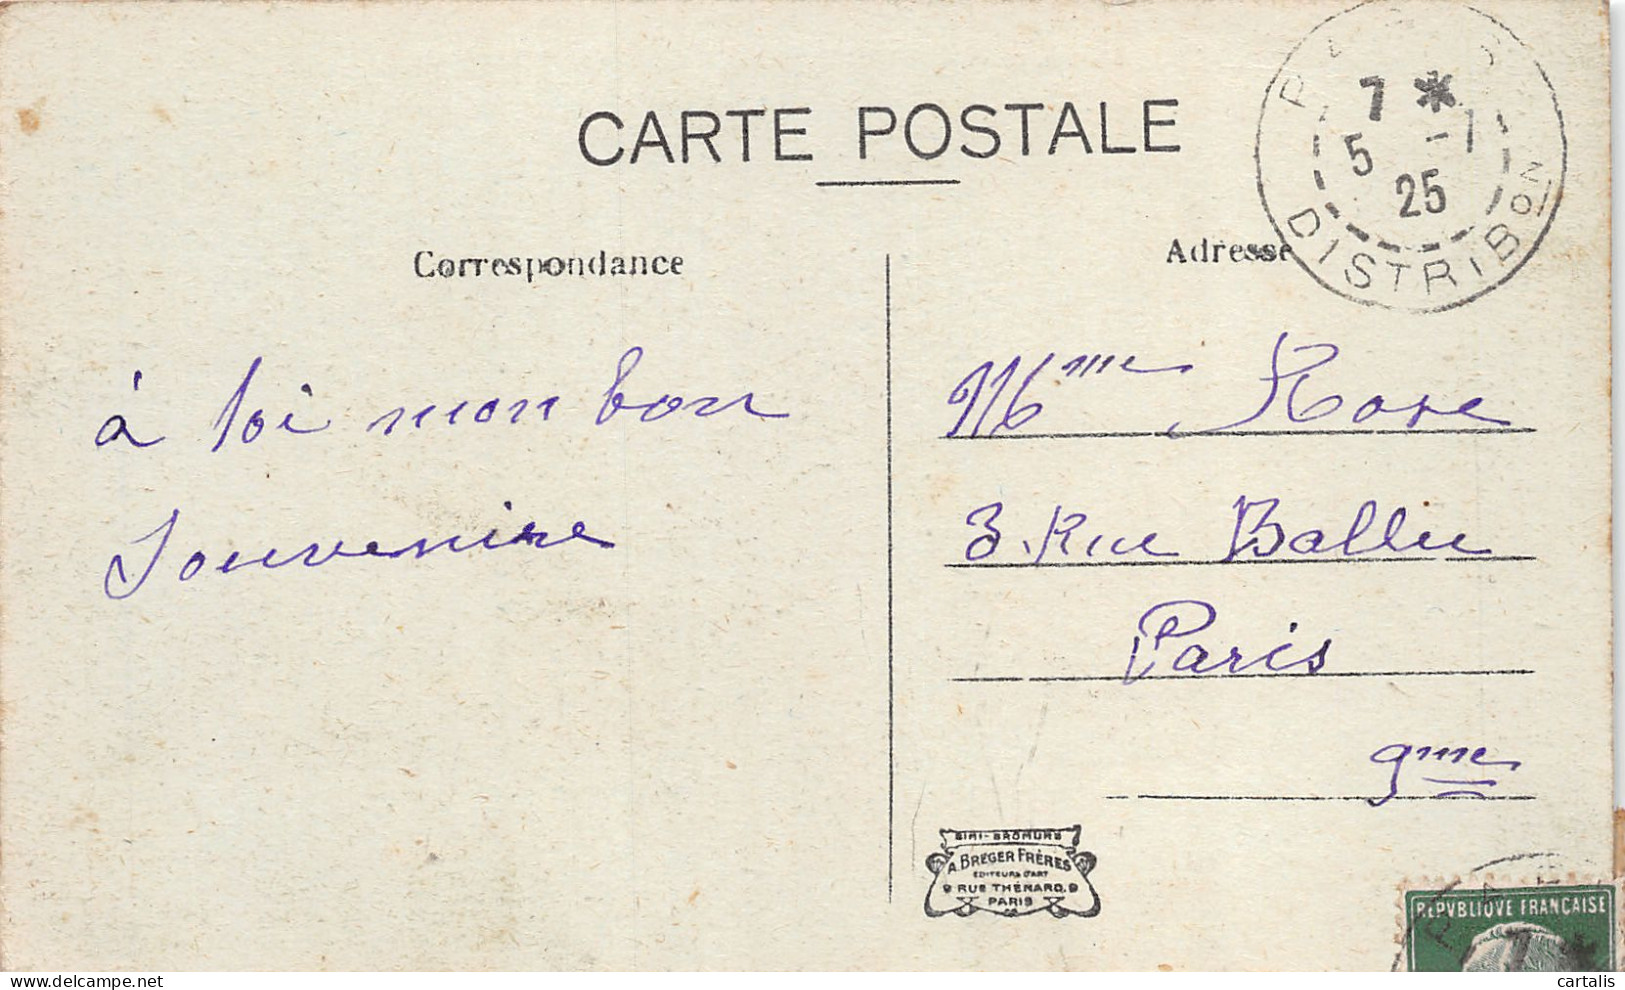 CARTE POSTALE
Correspondance
Adresse
7 *
5 -7
25
DISTRIBON
à toi mon bon
Souvenire
Mme Rose
3 Rue Ballu
Paris
9me
SIMI-BROMURE
A. BREGER FRÈRES
EDITEURS D'ART
9 RUE THÉNARD, 9
PARIS
REPVBLIQVE FRANÇAISE
delcampe.net
cartalis